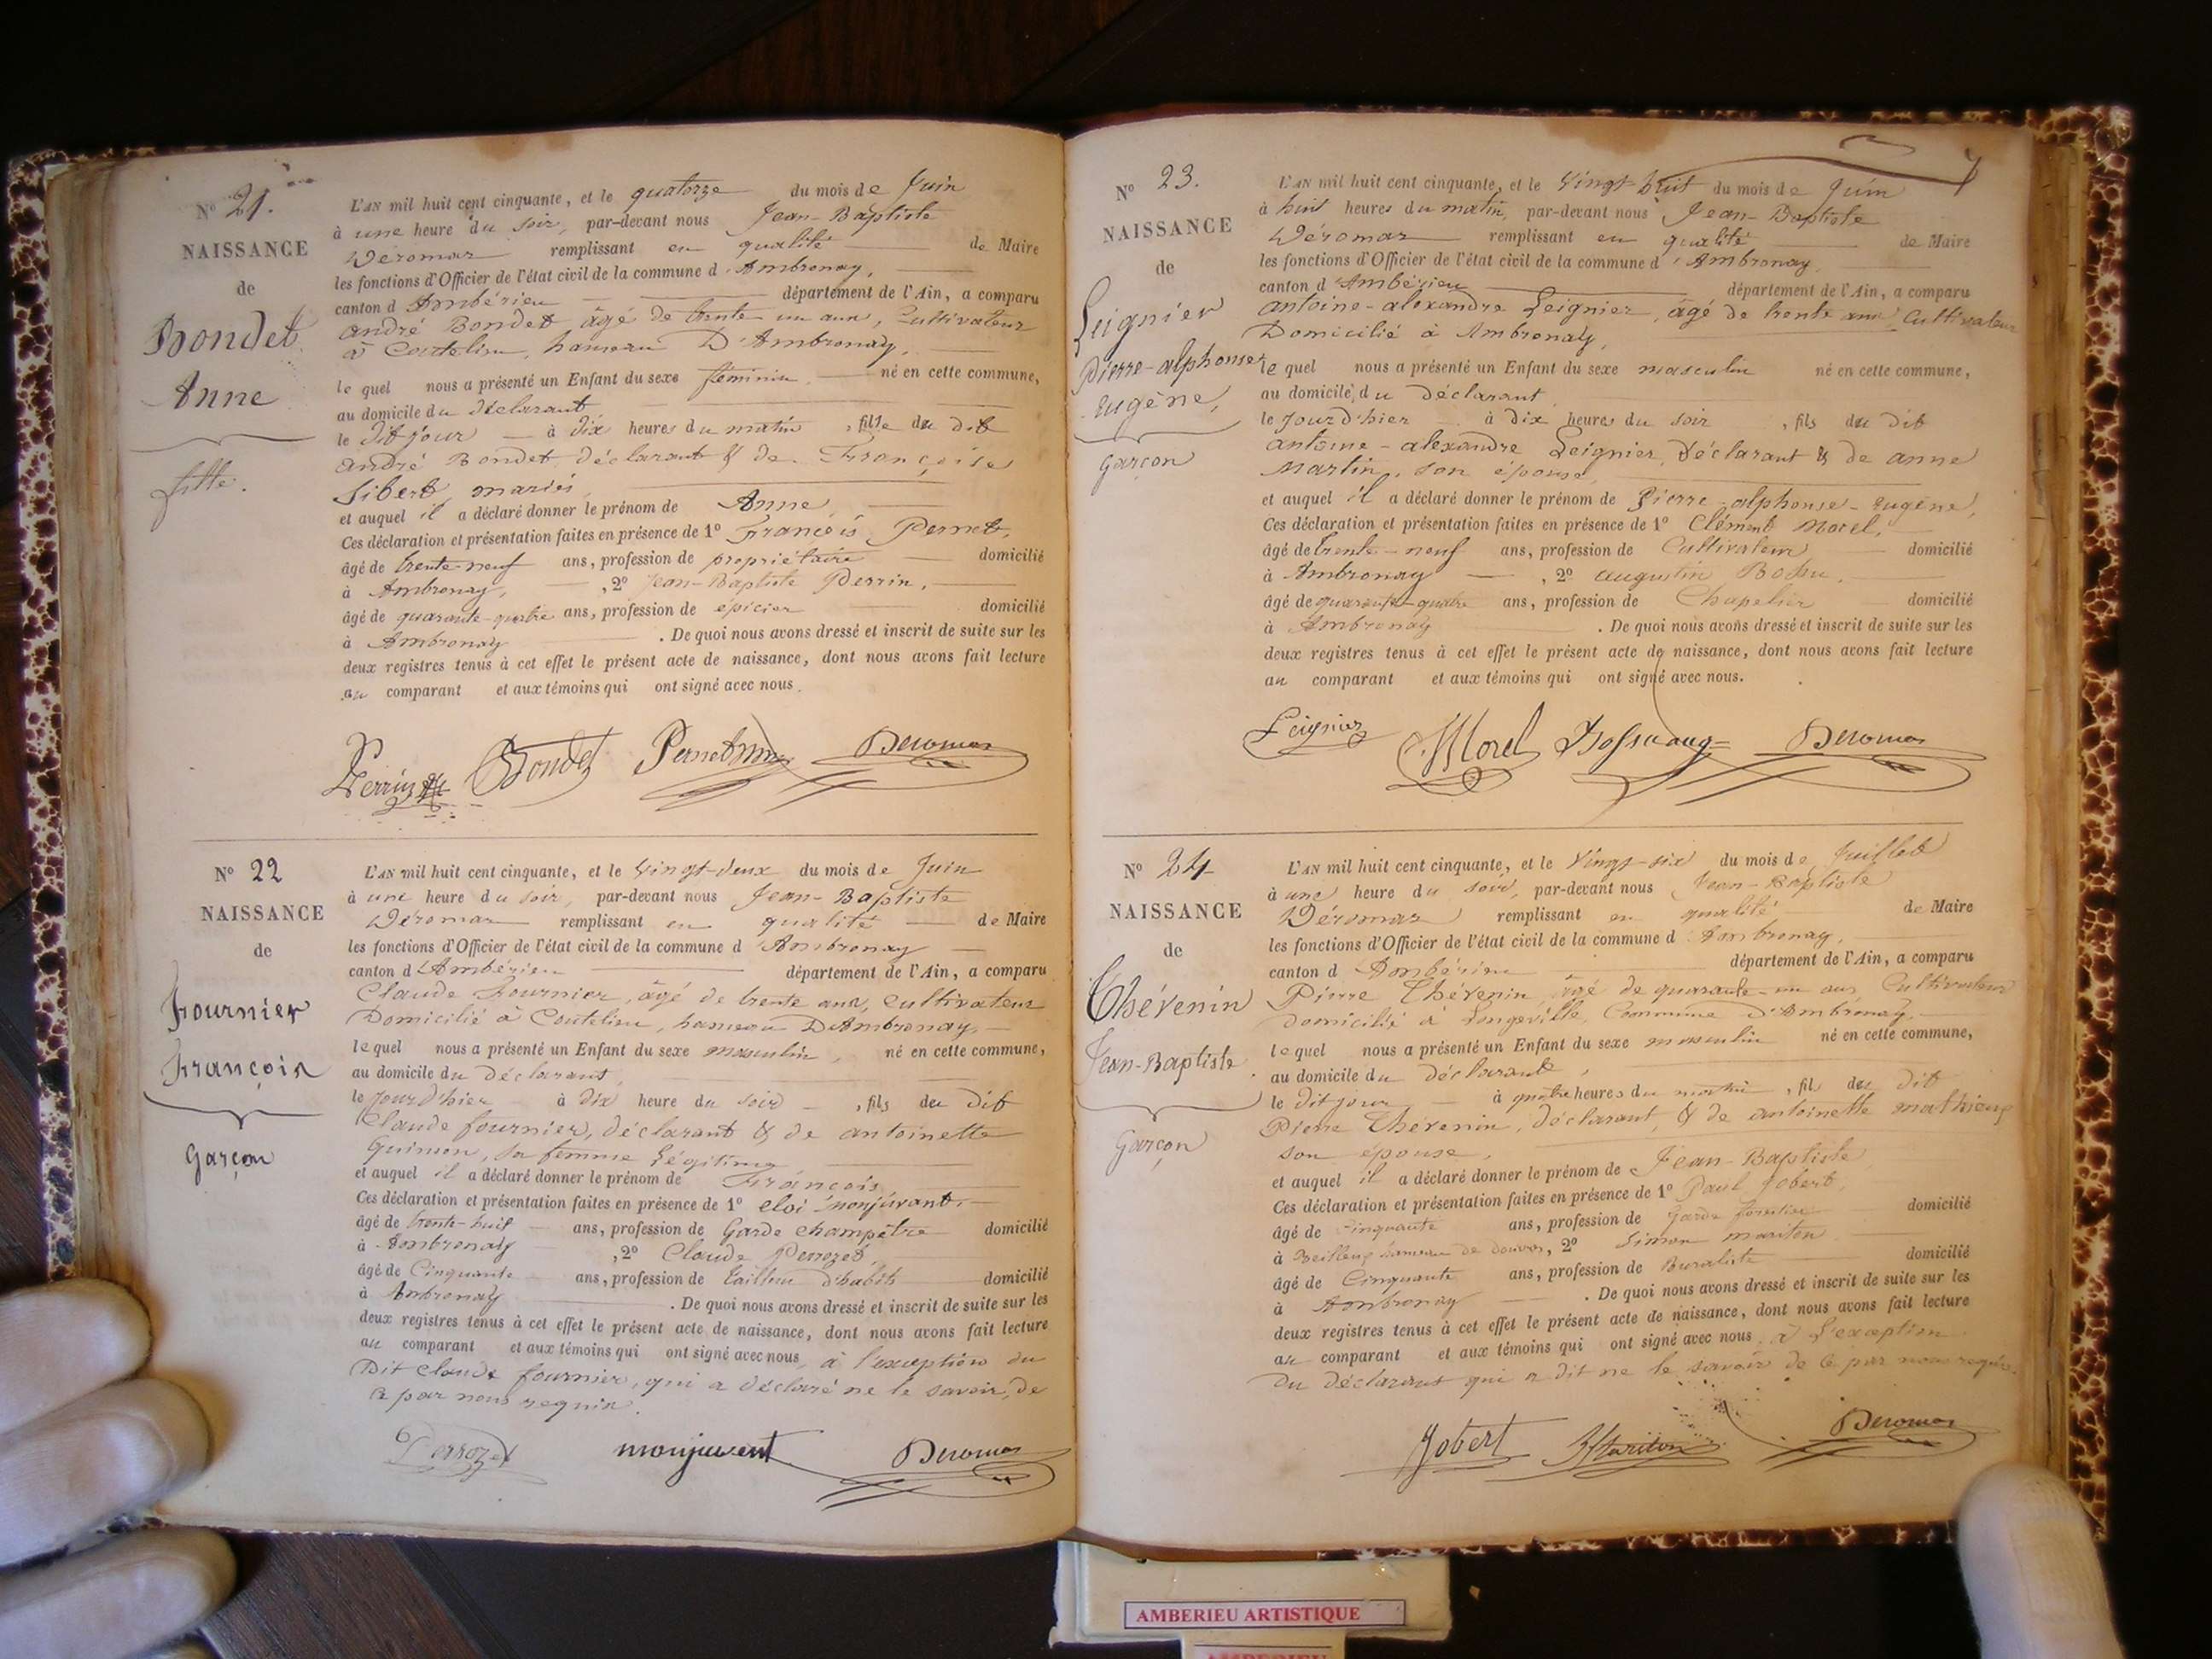 N° 21.
NAISSANCE
de
Bondet
Anne
fille.
L'AN mil huit cent cinquante, et le quatorze du mois de Juin
à une heure du soir, par-devant nous Jean-Baptiste
Déromas remplissant en qualité de Maire
les fonctions d'Officier de l'état civil de la commune d'Ambronay,
canton d'Ambérieu département de l'Ain, a comparu
andré Bondet âgé de trente un ans, Cultivateur
à Coutelieu, hameau D'Ambronay,
le quel nous a présenté un Enfant du sexe féminin, né en cette commune,
au domicile du déclarant
le dit jour à dix heures du matin, fille du dit
andré Bondet, déclarant & de Françoise
Sibert, mariés
et auquel il a déclaré donner le prénom de Anne,
Ces déclaration et présentation faites en présence de 1° François Pernet,
âgé de trente-neuf ans, profession de propriétaire domicilié
à Ambronay, , 2° Jean-Baptiste Perrin,
âgé de quarante-quatre ans, profession de épicier domicilié
à Ambronay . De quoi nous avons dressé et inscrit de suite sur les
deux registres tenus à cet effet le présent acte de naissance, dont nous avons fait lecture
au comparant et aux témoins qui ont signé avec nous.
Perrin Bondet Pernet Deromas
N° 22
NAISSANCE
de
Fournier
François
Garçon
L'AN mil huit cent cinquante, et le vingt-deux du mois de Juin
à une heure du soir, par-devant nous Jean-Baptiste
Déromas remplissant en qualité de Maire
les fonctions d'Officier de l'état civil de la commune d'Ambronay
canton d'Ambérieu département de l'Ain, a comparu
Claude Fournier, âgé de trente ans, Cultivateur
Domicilié à Coutelieu, hameau D'Ambronay,
le quel nous a présenté un Enfant du sexe masculin, né en cette commune,
au domicile du déclarant,
le jourd'hier à dix heure du soir, fils du dit
Claude fournier, déclarant & de antoinette
Guinson, sa femme Légitime,
et auquel il a déclaré donner le prénom de François
Ces déclaration et présentation faites en présence de 1° eloi monjuvant,
âgé de trente-huit ans, profession de Garde champêtre domicilié
à Ambronay , 2° Claude Perrozet,
âgé de Cinquante ans, profession de tailleur d'habits domicilié
à Ambronay . De quoi nous avons dressé et inscrit de suite sur les
deux registres tenus à cet effet le présent acte de naissance, dont nous avons fait lecture
au comparant et aux témoins qui ont signé avec nous, à l'exception du
Dit Claude fournier, qui a déclaré ne le savoir, de
ce par nous requis.
Perrozet monjuvent Deromas
N° 23.
NAISSANCE
de
Leignier
Pierre-alphonse
Eugène,
Garçon
L'AN mil huit cent cinquante, et le Vingt-huit du mois de Juin
à huit heures du matin, par-devant nous Jean-Baptiste
Déromas remplissant en qualité de Maire
les fonctions d'Officier de l'état civil de la commune d'Ambronay,
canton d'Ambérieu département de l'Ain, a comparu
antoine-alexandre Leignier, âgé de trente ans Cultivateur
Domicilié à Ambronay,
le quel nous a présenté un Enfant du sexe masculin né en cette commune,
au domicile du déclarant
le jourd'hier à dix heures du soir, fils du dit
antoine-alexandre Leignier, déclarant & de anne
Martin, son épouse,
et auquel il a déclaré donner le prénom de Pierre-alphonse-Eugène,
Ces déclaration et présentation faites en présence de 1° Clément Morel,
âgé de trente-neuf ans, profession de Cultivateur domicilié
à Ambronay , 2° augustin Bossu,
âgé de quarante-quatre ans, profession de Chapelier domicilié
à Ambronay . De quoi nous avons dressé et inscrit de suite sur les
deux registres tenus à cet effet le présent acte de naissance, dont nous avons fait lecture
au comparant et aux témoins qui ont signé avec nous.
Leignier Morel Bossu aug Deromas
N° 24
NAISSANCE
de
Thévenin
Jean-Baptiste
Garçon
L'AN mil huit cent cinquante, et le Vingt-six du mois de Juillet
à une heure du soir, par-devant nous Jean-Baptiste
Déromas remplissant en qualité de Maire
les fonctions d'Officier de l'état civil de la commune d'Ambronay,
canton d'Ambérieu département de l'Ain, a comparu
Pierre Thévenin âgé de quarante-un ans, Cultivateur
domicilié à Longeville, Commune d'Ambronay,
le quel nous a présenté un Enfant du sexe masculin né en cette commune,
au domicile du déclarant,
le dit jour à quatre heures du matin, fils du dit
Pierre Thévenin, déclarant, & de antoinette mathieu
son épouse,
et auquel il a déclaré donner le prénom de Jean-Baptiste
Ces déclaration et présentation faites en présence de 1° Paul Jobert,
âgé de Cinquante ans, profession de Garde forestier domicilié
à hameau de douvres, 2° Simon mariton
âgé de Cinquante ans, profession de Buraliste domicilié
à Ambronay . De quoi nous avons dressé et inscrit de suite sur les
deux registres tenus à cet effet le présent acte de naissance, dont nous avons fait lecture
au comparant et aux témoins qui ont signé avec nous à l'exception
du déclarant qui a dit ne le savoir de ce par nous requis.
Jobert Mariton Deromas
AMBERIEU ARTISTIQUE
AMBERIEU